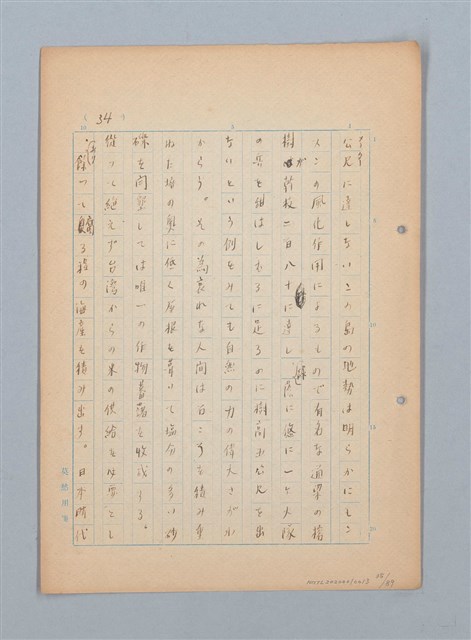 34
公尺に達しないこの島の地勢は明らかにモン
スンの風化作用によるもので有名な通梁の榕
樹が荷枝二百八十に達し蔭に悠に一ヶ大隊
の兵を組はしむるに足るのに樹高五公尺を出
ないという例をみても自然の力の偉大さがわ
からう。その為哀れな人間は石ころを積み重
ねた垣の奥に低く屋根を葺いて塩分の多い砂
礫を開墾しては唯一の作物蕃藷を收成しうる。
從つて絶えず台湾からの米の供給を必要とし
餘つて腐る程の海産を積み出す。日本時代